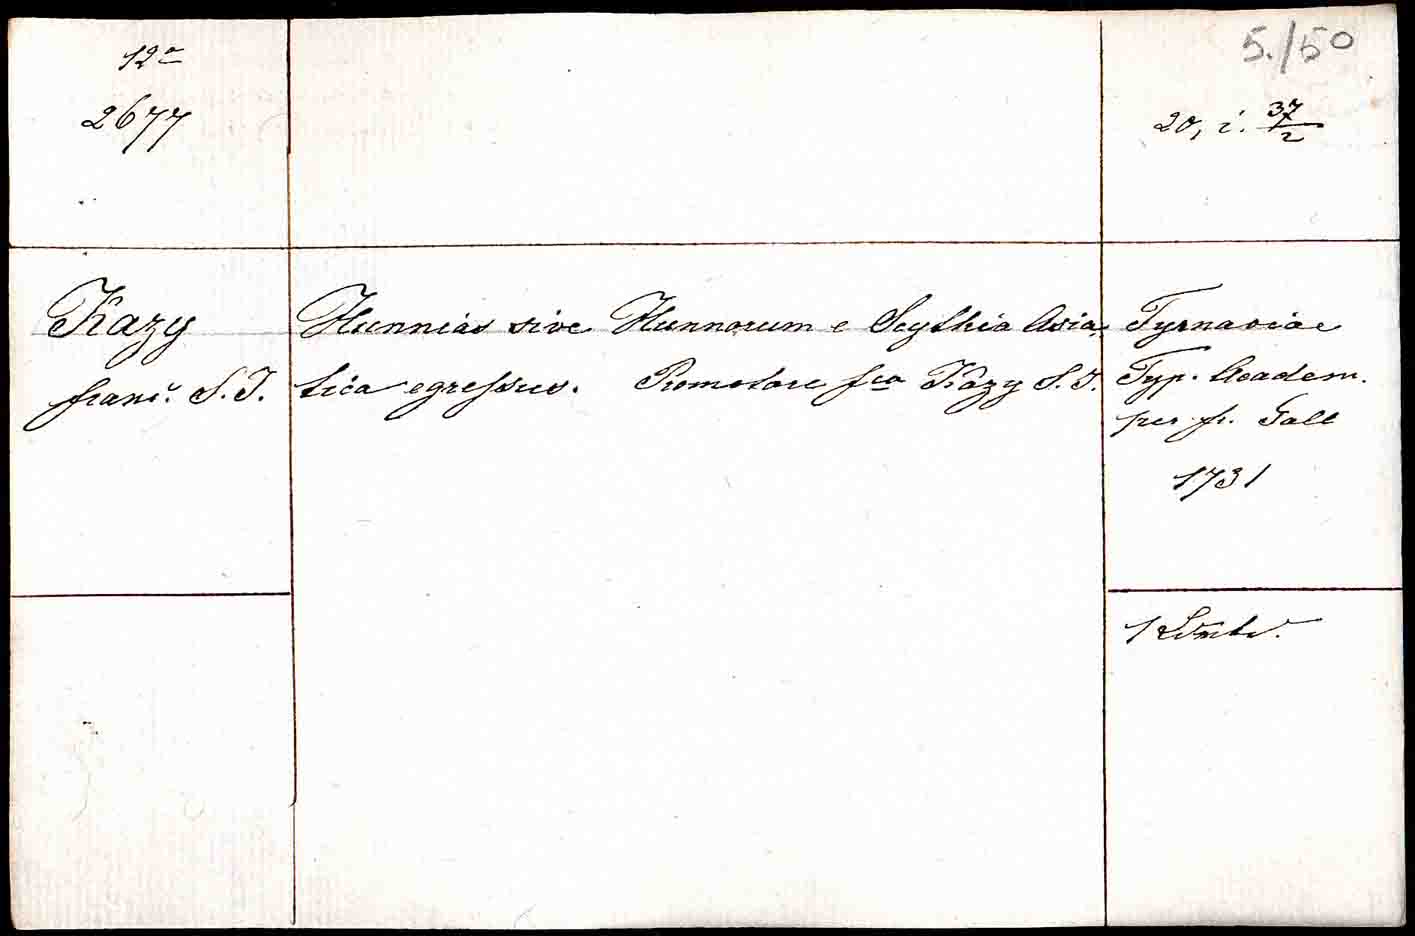 12°
2677
5./50
20, i. 37/2
Kazy
franc. S. J.
Hunnias sive Hunnorum e Scythia Asia-
tica egressus. Promotore fco Kazy S. J.
Tyrnaviae
Typ. Academ.
per fr. Gall
1731
1